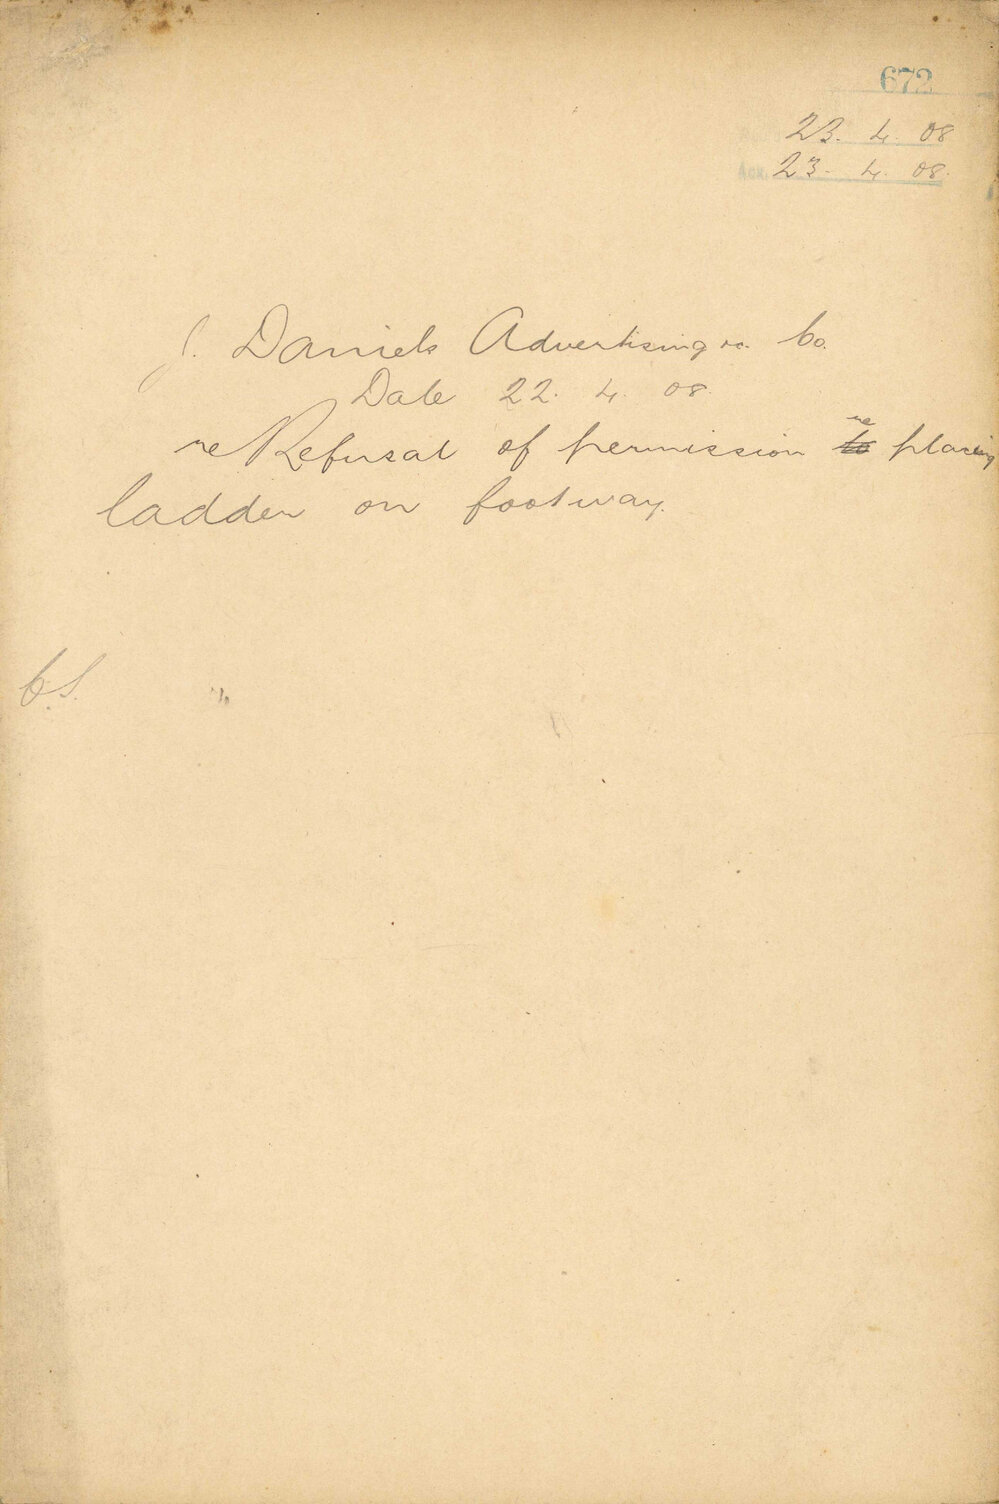 672
23. 4. 08
Ack. 23. 4. 08.
J. Daniels Advertising &c. Co.
Date 22. 4. 08.
re Refusal of permission to re placing
ladder on footway.
C.S.